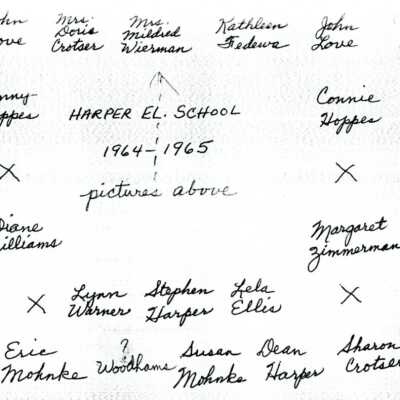 Mrs. Mrs. Kathleen John
Doris Mildred Fedewa Love
Crotser Wierman
HARPER EL. SCHOOL
1964-1965
pictures above
Connie
Hoppes
Diane
Margaret
Zimmerman
Lynn Stephen Lela
Warner Harper Ellis
Eric ? Susan Dean Sharon
Mohnke Woodhams Mohnke Harper Crotser